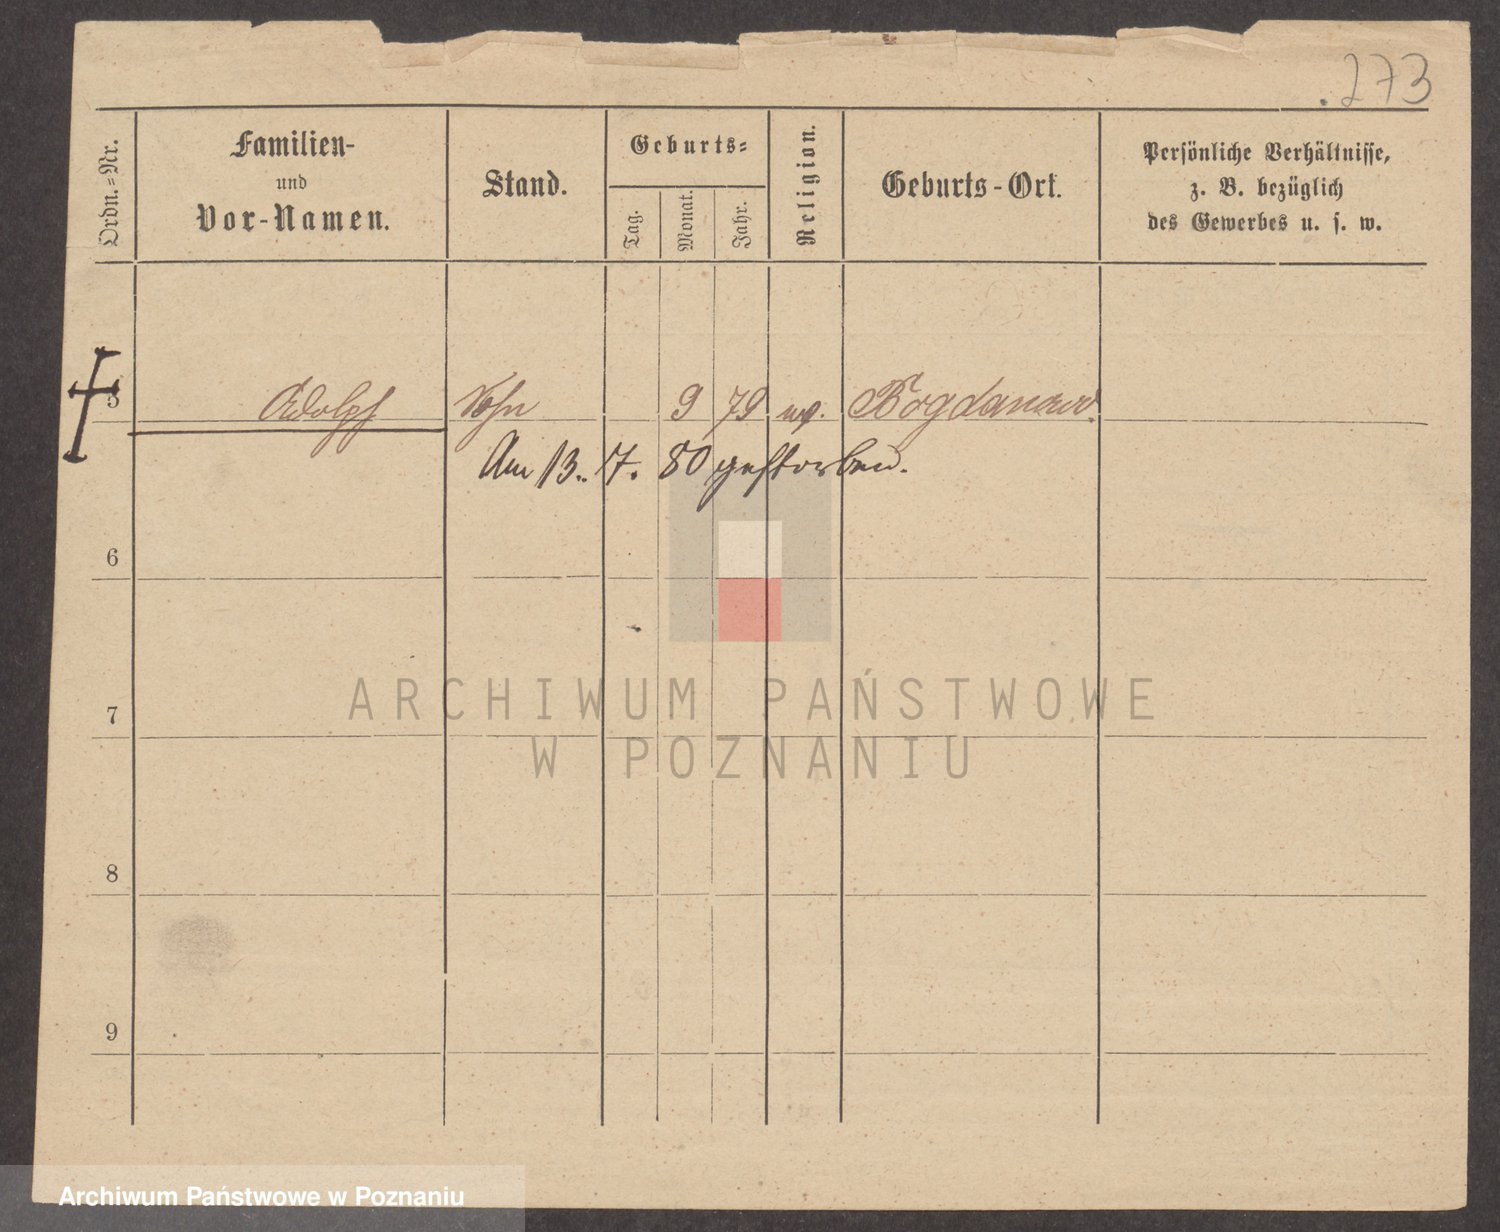 273
Ordn.=Nr.
Familien-
und
Vor-Namen.
Stand.
Geburts=
Tag.
Monat.
Jahr.
Religion.
Geburts-Ort.
Persönliche Verhältnisse,
z. B. bezüglich
des Gewerbes u. s. w.
5 Adolph Sohn 9 79 ev. Bogdanowo
Am 13. 7. 80 gestorben.
6
7
8
9
ARCHIWUM PAŃSTWOWE
W POZNANIU
Archiwum Państwowe w Poznaniu